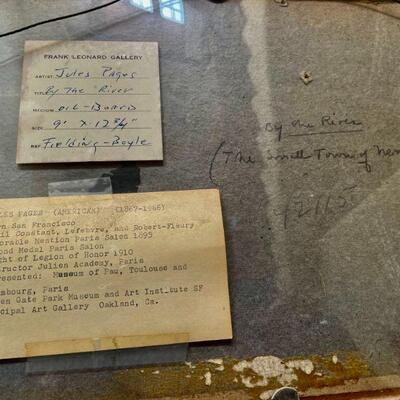 FRANK LEONARD GALLERY
ARTIST Jules Pages
TITLE By The River
MEDIUM OIL-BOARD
SIZE 9" x 12 3/4"
REF Fielding-Boyle
By the River
(The Small Town of
42115
LES PAGES (AMERICAN) (1867-1946)
rn San Francisco
il Constant, Lefebvre, and Robert-Fleury
orable Mention Paris Salon 1895
ond Medal Paris Salon
ght of Legion of Honor 1910
tructor Julien Academy, Paris
resented: Museum of Pau, Toulouse and
embourg, Paris
en Gate Park Museum and Art Institute SF
cipal Art Gallery Oakland, Ca.